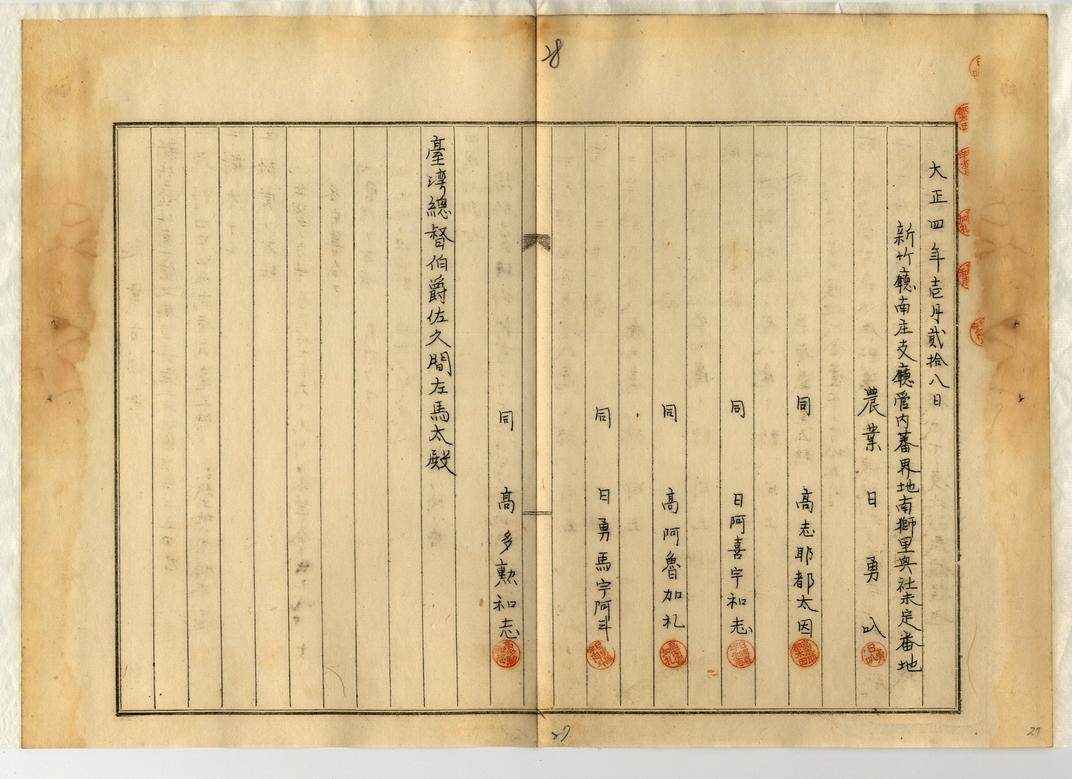 28
大正四年壱月貳拾八日
新竹廳南庄支廳管内蕃界地南獅里興社未定番地
農業 日勇叺
同 高志耶都太因
同 日阿喜宇和志
同 高阿魯加礼
同 日勇馬宇阿斗
同 高多勲和志
臺湾總督伯爵佐久間左馬太殿
27
27